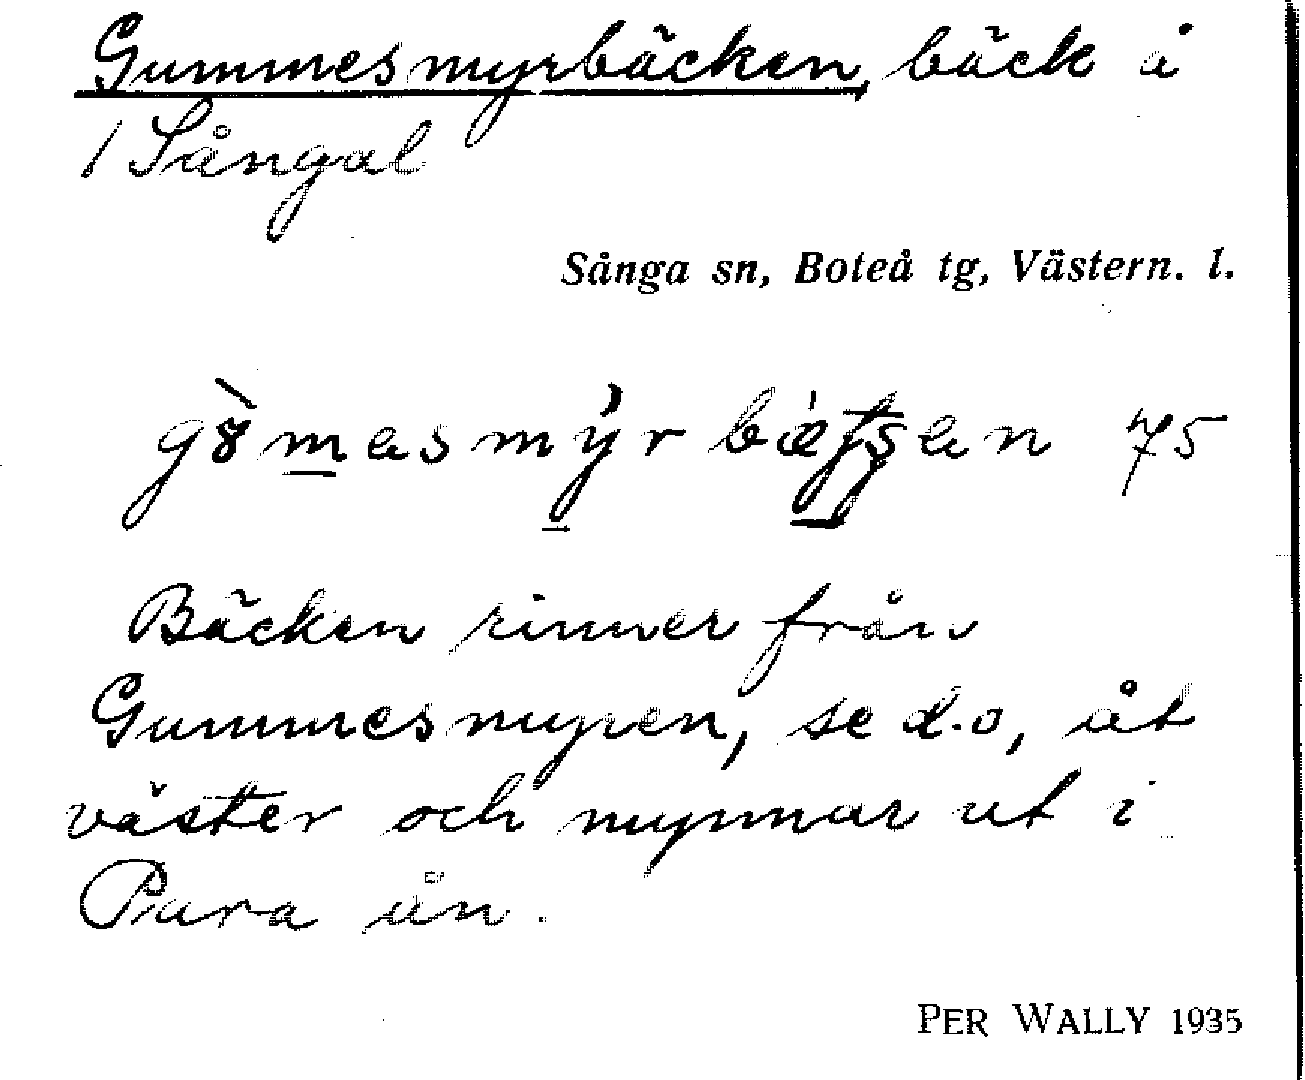 Gummesmyrbäcken, bäck å
1 Sångal
Sånga sn, Boteå tg, Västern. l.
75
Bäcken rinner från
Gummesmyren, se d.o, åt
väster och mynnar ut i
Para ån.
PER WALLY 1935